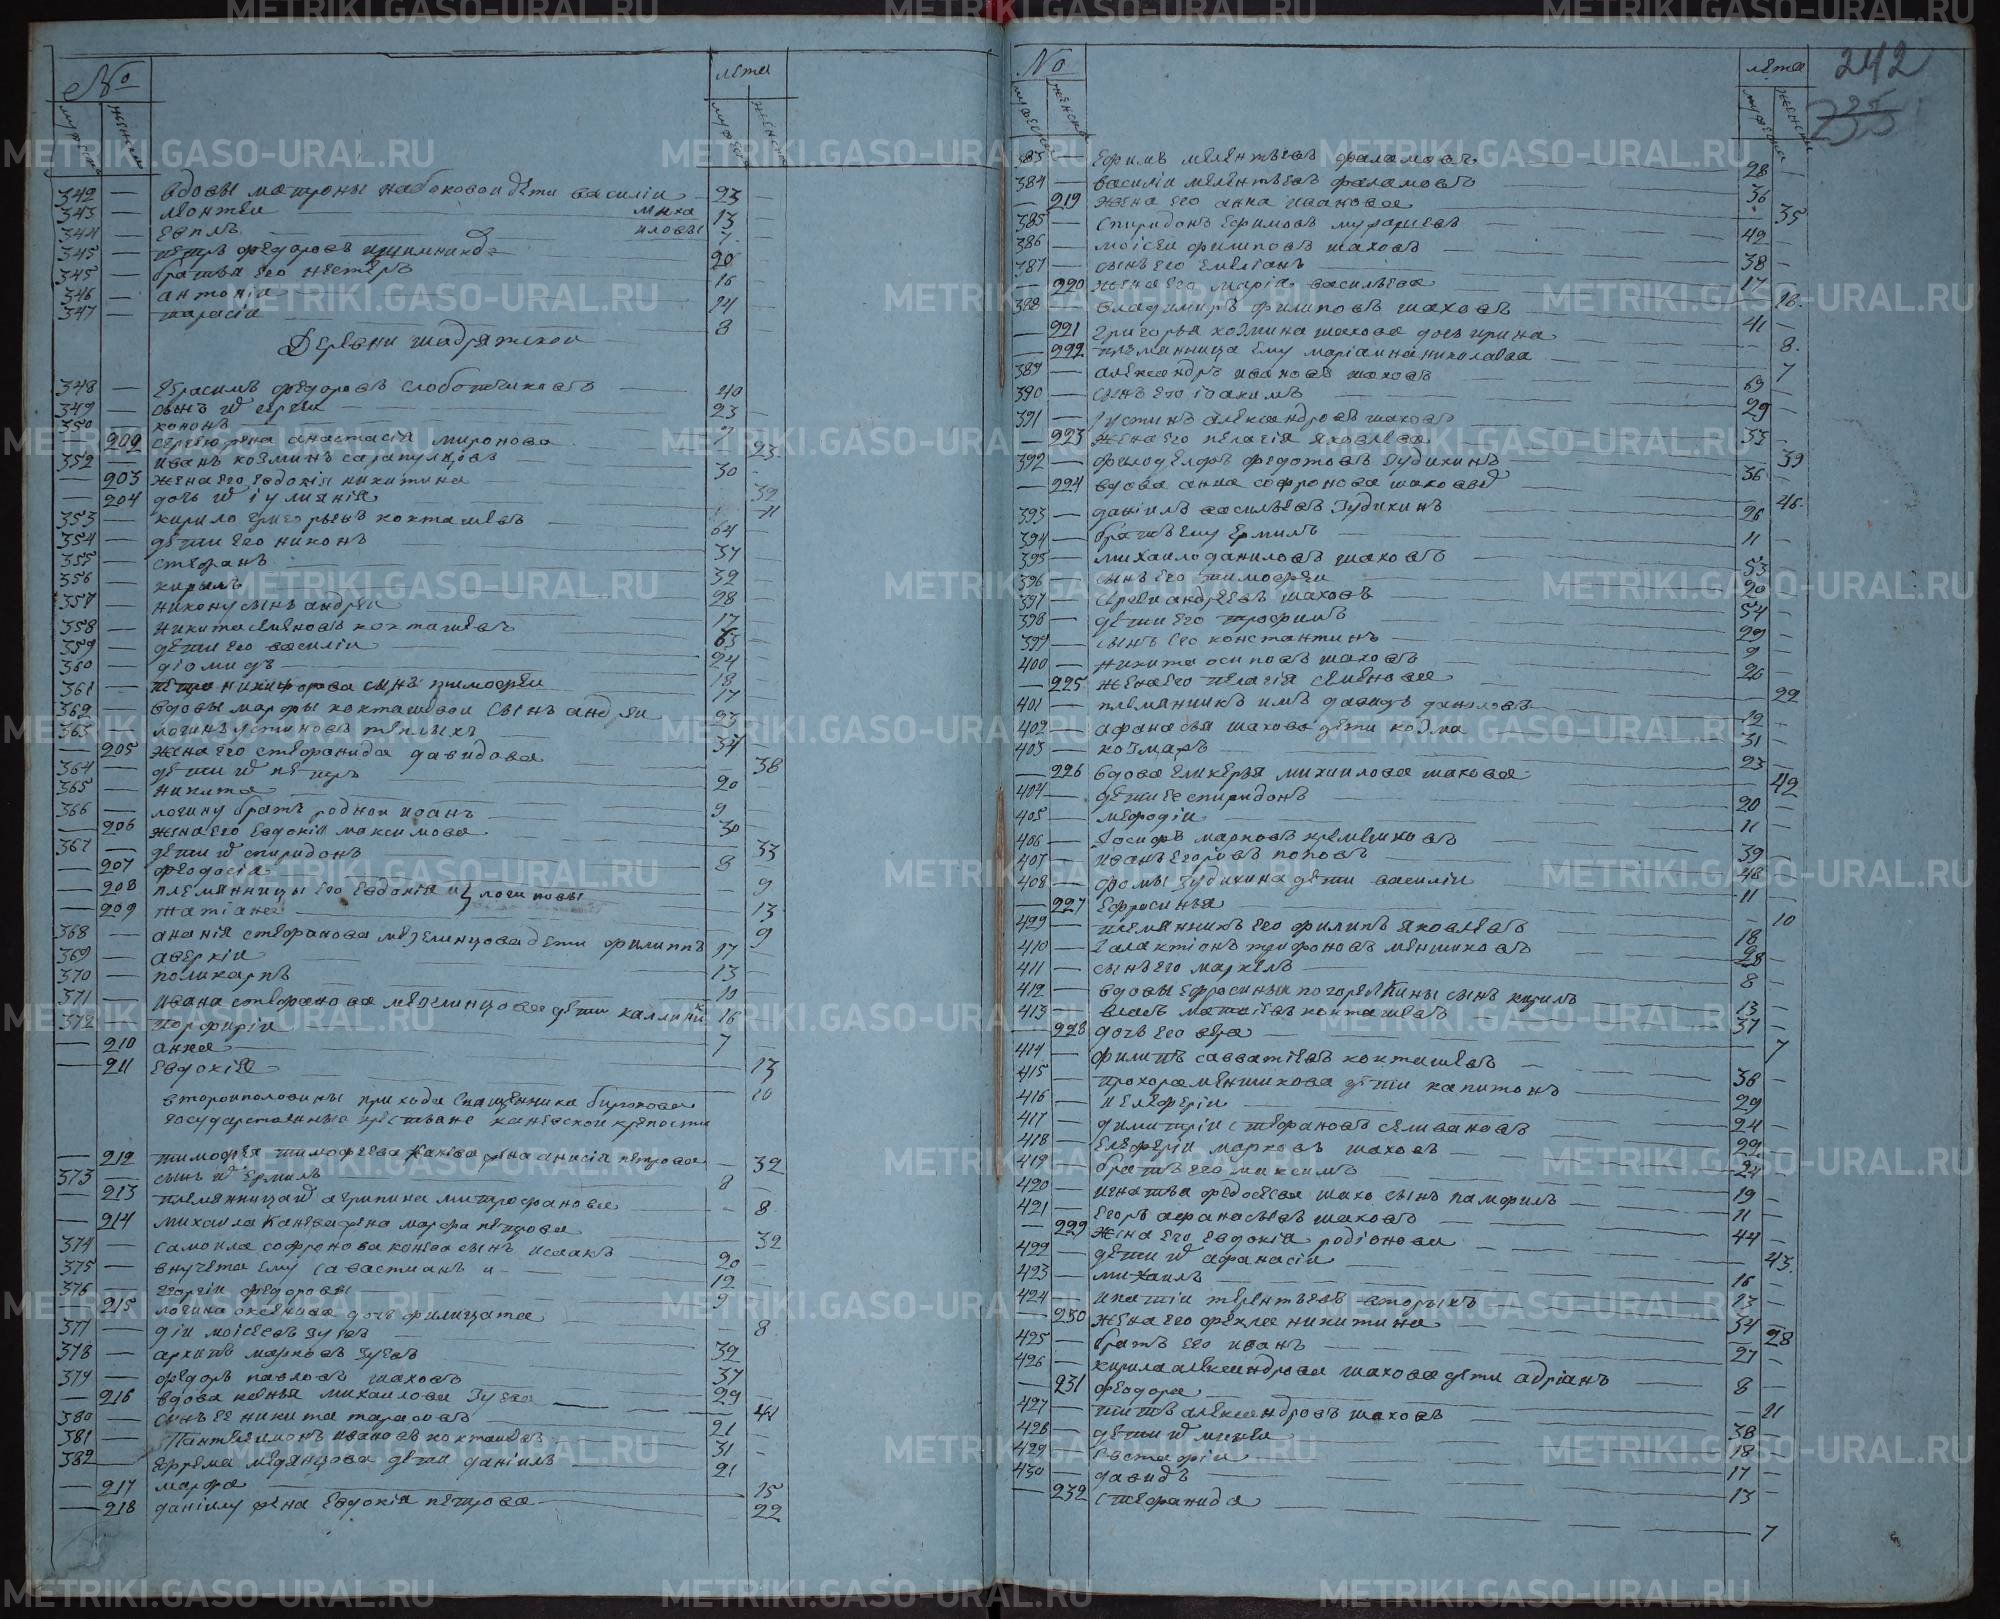 № лѣта
мужеска женска мужеска женска
342 — вдовы матроны набоковой дѣти василіи — 23 —
343 — леонтеи — миха 13 —
344 — евплъ — иловы 7 —
345 — петръ федоровъ 20 —
345 — братья его нестеръ 16
346 — антоніи — 14 —
347 — тарасіи — 8 —
Деревни шадрятской
348 — герасимъ федоровъ слоботчиковъ — 40
349 — сынъ сергеи — 23 —
350 — кононъ 7 —
— 202 анастасія миронова — 23
352 — иванъ козминъ сарапулцовъ — 30 —
— 203 жена его евдокія никитина — 32
— 204 дочь іулиянія — 11
353 — кирило григорьевъ кокташевъ — 64 —
354 — дѣти его никонъ — 37 —
355 — стефанъ — 32 —
356 — кирилъ 28 —
357 — никону сынъ андреи 17 —
358 — никита семеновъ кокташевъ 63 —
359 — дѣти его василіи — 24 —
360 — діомидъ — 18 —
361 — никифорова сынъ тимофеи 17 —
362 — вдовы марфы кокташевой сынъ андреи 23 —
363 — логинъ устиновъ теплыхъ — 37 —
— 205 жена его стефанида давидова — 38
364 — дѣти петръ — 20 —
365 — никита — 9 —
366 — логину братъ родной иоанъ — 30 —
— 206 жена его евдокія максимова — 33
367 — дѣти спиридонъ — 8 —
— 207 феодосія — 9
— 208 племянницы его евдокія и } логиновы 13
— 209 татіана — 9
368 — ананія стефанова мезелинцова дѣти филиппъ 17 —
369 — аверкіи — 13 —
370 — поликарпъ — 10 —
371 — ивана стефанова мезелинцова дѣти каллиникъ 16 —
372 — порфиріи — 7 —
— 210 анна — 13
— 211 евдокія — 10
второй половины прихода священника бирюкова
государственные крестьяне каневской крепости
— 212 тимофея тимофеева канева жена анисія петрова — 32
373 — сынъ ермилъ — 8 —
— 213 племянница агрипина митрофанова — 8
— 214 михаила канева жена марфа петрова — 32
374 — самоила софронова конева сынъ исаакъ — 20 —
375 — внучета ему савастианъ и — 12 —
376 — георгіи федоровы — 9 —
— 215 логина оксенова дочь филицата — 8
377 — діи моісеевъ зуевъ — 32 —
378 — архипъ марковъ зуевъ 37 —
379 — федоръ павловъ шаховъ 29 —
— 216 вдова ксенья михаилова зуева — 44
380 — сынъ ее никита тарасовъ 21 —
381 — пантелеимонъ ивановъ кокташевъ 31 —
382 — ефрема медянцова дѣти даніилъ 21 —
— 217 марфа — 15
— 218 даніилу жена евдокія петрова — 22
242
235
№ лѣта
мужеска женска мужеска женска
383 — ефимъ мелентьевъ фаламовъ — 28 —
384 — василіи мелентьевъ фаламовъ — 36 —
— 219 жена его анна иванова — 35
385 — спиридонъ ефимовъ мурашевъ 42 —
386 — моісеи филиповъ шаховъ — 38 —
387 — сынъ его емеліанъ — 17 —
— 220 жена его марія васильева — 18.
388 — владимиръ филиповъ шаховъ — 41 —
— 221 григорья козмина шахова дочь ирина — 8.
— 222 племянница ему маріамна николаева — 7
389 — александръ ивановъ шаховъ — 69 —
390 — сынъ его іоакимъ — 29 —
391 — іустинъ александровъ шаховъ 53 —
— 223 жена его пелагія яковлева — 39
392 — филоделфъ федотовъ зудихинъ — 36 —
— 224 вдова анна софронова шахова — 46.
393 — даніилъ васильевъ зудихинъ — 26 —
394 — братъ ему ермилъ — 11 —
395 — михаило даниловъ шаховъ — 53 —
396 — сынъ его тимофеи 20 —
397 — сергеи андреевъ шаховъ — 54 —
398 — дѣти его трофимъ 29 —
399 — сынъ его константинъ — 9 —
400 — никита осиповъ шаховъ — 26 —
— 225 жена его пелагія семенова — 22
401 — племянникъ имъ давидъ даниловъ 12 —
402 — афанасья шахова дѣти козма — 31 —
403 — козмаръ 23 —
— 226 вдова гликерья михаилова шахова — 42
404 — дѣти ее спиридонъ 20 —
405 — мефодіи — 11 —
406 — іосифъ марковъ кремешковъ 39 —
407 — иванъ егоровъ поповъ — 48 —
408 — фомы зудихина дѣти василіи — 11 —
— 227 ефросинья — 10
429 — племянникъ его филипъ яковлевъ — 18 —
410 — галактіонъ трифоновъ меншиковъ — 28 —
411 — сынъ его маркелъ — 8 —
412 — вдовы ефросиньи погорелкины сынъ кирилъ 13 —
413 — власъ матвѣевъ кокташевъ — 37 —
— 228 дочь его вера — 7
414 — филипъ савватіевъ кокташевъ — 38 —
415 — прохора меншикова дѣти капитонъ 29 —
416 — елеферіи — 24 —
417 — димитріи стефановъ селивановъ — 22. —
418 — елеферіи марковъ шаховъ — 24 —
419 — братъ его максимъ — 19 —
420 — игнатья федосеева шахо сынъ памфилъ 11 —
421 — егоръ афанасьевъ шаховъ — 44 —
— 229 жена его евдокія родіонова — 43.
422 — дѣти афанасіи — 16 —
423 — михаилъ — 13 —
424 — ипатіи терентьевъ вторыхъ — 34 —
— 230 жена его фекла никитина — 28
425 — братъ его иванъ — 27 —
426 — кирила александрова шахова дѣти адріанъ 8 —
— 231 феодора — 11
427 — титъ александровъ шаховъ — 38 —
428 — дѣти михеи — 18 —
429 — евстафіи — 17 —
430 — давидъ — 13 —
— 232 стефанида — 7